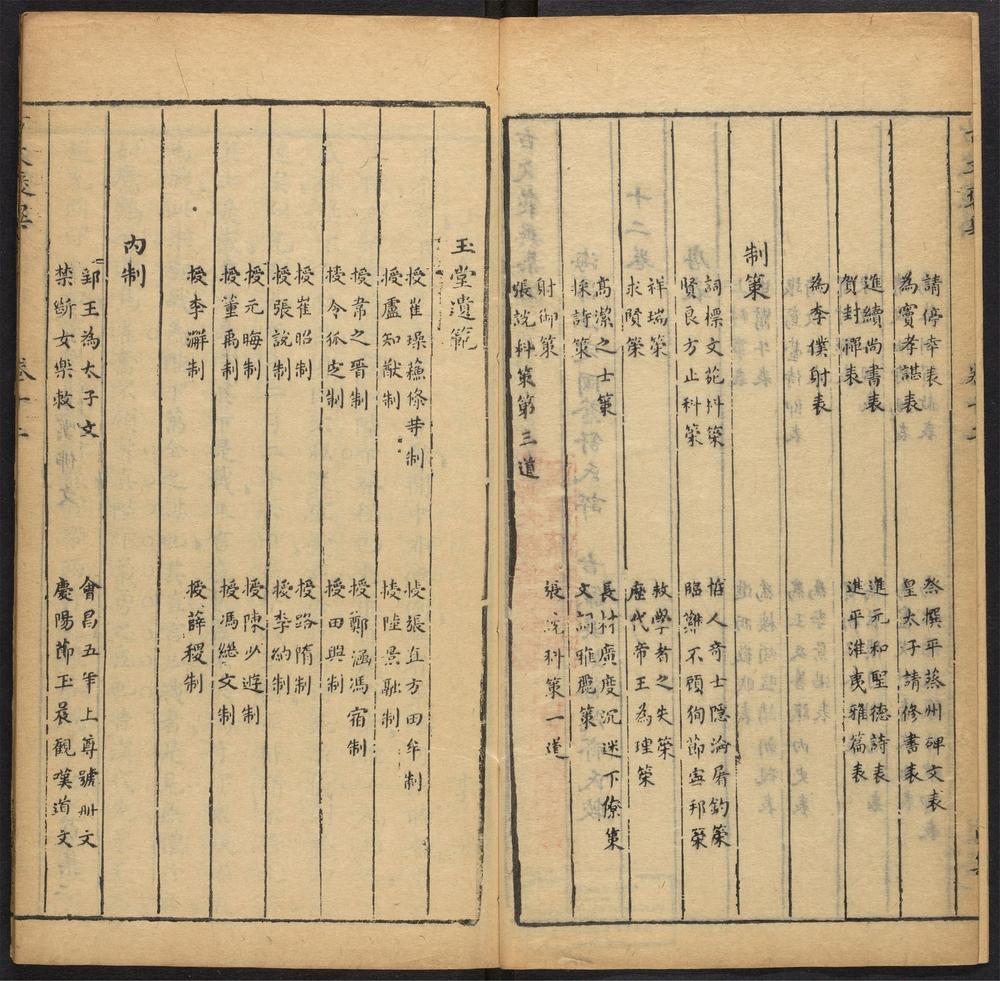 請停幸表　祭撰平蔡州碑文表
為竇孝諶表　皇太子請修書表
進續尚書表　進元和聖德詩表
賀封禪表　進平淮夷雅篇表
為李僕射表
制策
詞標文苑科策　哲人奇士隱淪屠釣策
賢良方正科策　臨難不顧徇節寧邦策
祥瑞策　教學者之失策
求賢策　歷代帝王為理策
高潔之士策　長材廣度沉迷下僚策
採詩策　文詞雅麗策
射御策　張說科策一道
張說科策第三道
玉堂遺範
授崔璪蘓滌等制　授張直方田牟制
授盧知猷制　授陸景融制
授韋之晋制　授鄭涵馮宿制
授令狐定制　授田興制
授崔昭制　授路隋制
授張說制　授李約制
授元晦制　授陳少遊制
授董禹制　授馮繼文制
授李澣制　授薛稷制
内制
郢王為太子文　會昌五年上尊號册文
禁斷女樂敕　慶陽節玉晨觀嘆道文
卷十二